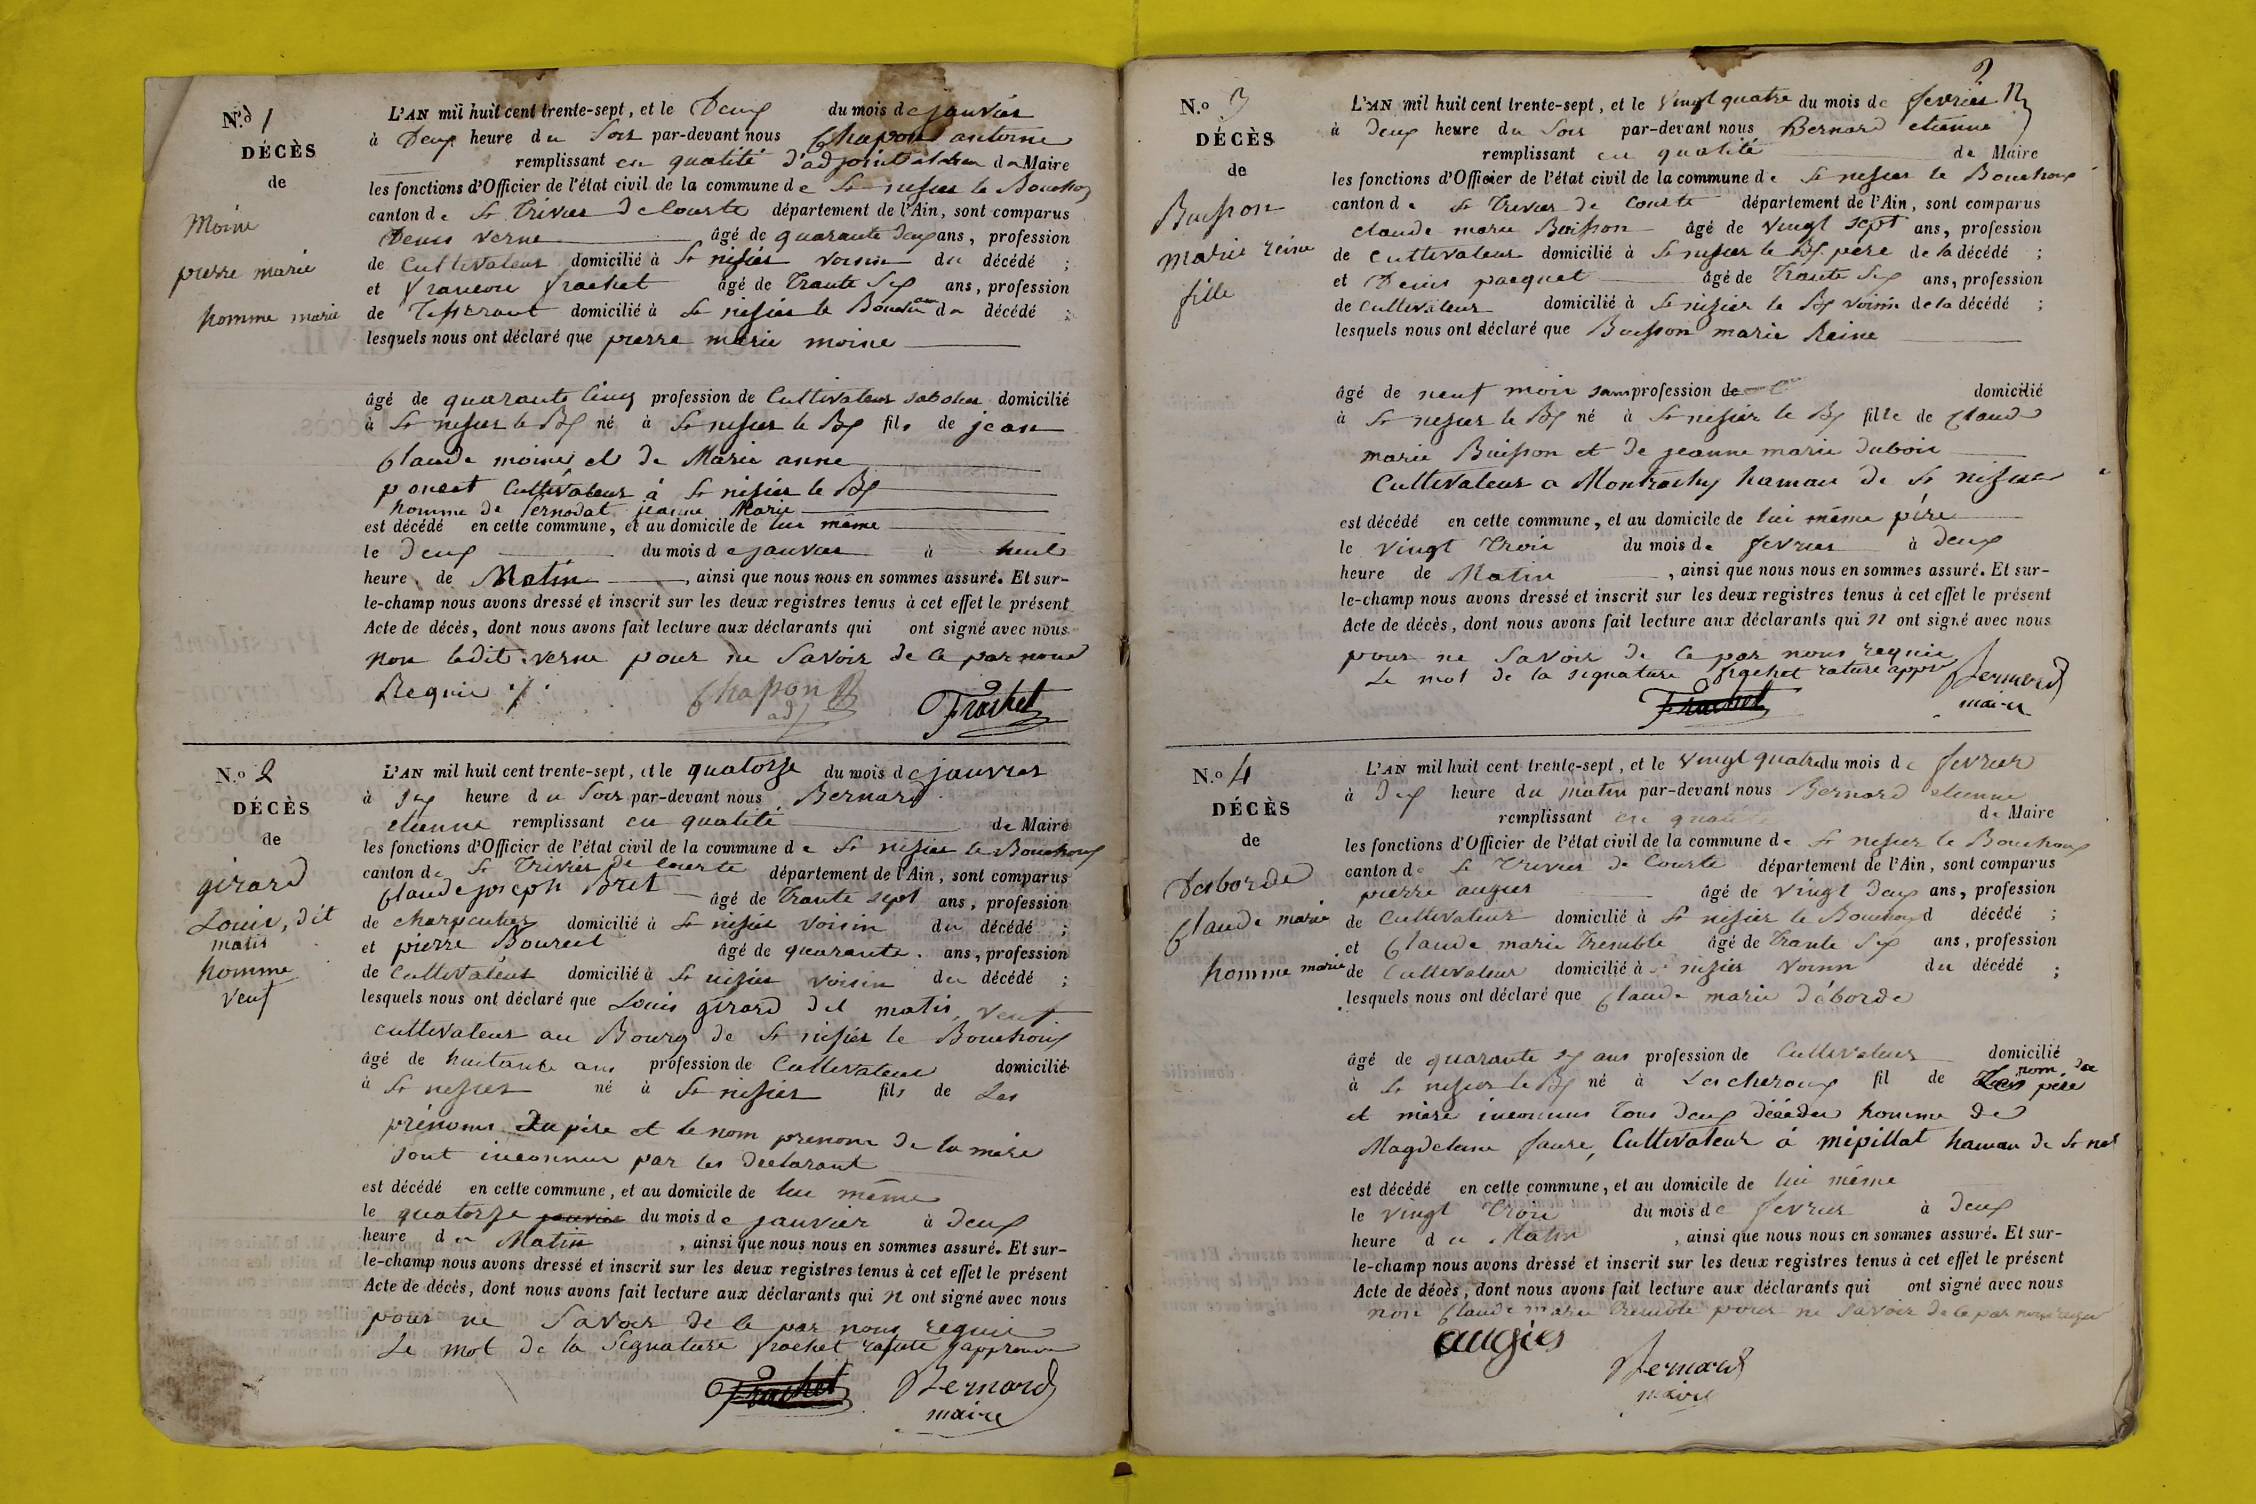 N.o 1
DÉCÈS
de
Moine
pierre marie
homme marié
L'AN mil huit cent trente-sept, et le Deux du mois de janvier
à Deux heure du Soir par-devant nous Chapon antoine
remplissant en qualité d'adjoint de Maire
les fonctions d'Officier de l'état civil de la commune de St nisier le Bouchoux
canton de St Trivier de Courte département de l'Ain, sont comparus
Denis verne âgé de quarante deux ans, profession
de Cultivateur domicilié à St nisier voisin du décédé ;
et francois frachet âgé de Trante Six ans, profession
de Tisserant domicilié à St nisier le Bouchoux du décédé ;
lesquels nous ont déclaré que pierre marie moine
âgé de quarante Cinq profession de Cultivateur domicilié
à St nisier le Bx né à St nisier le Bx fils de jean
Claude moine et de Marie anne
poncet Cultivateur à St nisier le Bx
homme de Sernodat jeanne Marie
est décédé en cette commune, et au domicile de lui même
le deux du mois de janvier à huit
heure de Matin, ainsi que nous nous en sommes assuré. Et sur-
le-champ nous avons dressé et inscrit sur les deux registres tenus à cet effet le présent
Acte de décès, dont nous avons fait lecture aux déclarants qui ont signé avec nous
non ledit verne pour ne Savoir de ce par nous
Requie
Chapon
adj
Frachet
N.o 2
DÉCÈS
de
girard
Louis, dit
matis
homme
veuf
L'AN mil huit cent trente-sept, et le quatorze du mois de janvier
à Six heure du Soir par-devant nous Bernard
etienne remplissant en qualité de Maire
les fonctions d'Officier de l'état civil de la commune de St nisier le Bouchoux
canton de St Trivier de Courte département de l'Ain, sont comparus
Claude joseph Bret âgé de Trante sept ans, profession
de charpentier domicilié à St nisier voisin du décédé ;
et pierre Boureil âgé de quarante ans, profession
de Cultivateur domicilié à St nisier voisin du décédé ;
lesquels nous ont déclaré que Louis girard dit matis, veuf
cultivateur au Bourg de St nisier le Bouchoux
âgé de huitante ans profession de Cultivateur domicilié
à St nisier né à St nisier fils de Les
prénoms du père et le nom prenom de la mère
sont inconnus par les declarant
est décédé en cette commune, et au domicile de lui même
le quatorze janvier du mois de janvier à deux
heure du Matin, ainsi que nous nous en sommes assuré. Et sur-
le-champ nous avons dressé et inscrit sur les deux registres tenus à cet effet le présent
Acte de décès, dont nous avons fait lecture aux déclarants qui n ont signé avec nous
pour ne Savoir de ce par nous requie
Le mot de la Signature frachet rature approuve
Frachet
Bernard
maire
2
N.o 3
DÉCÈS
de
Buisson
marie reine
fille
L'AN mil huit cent trente-sept, et le vingt quatre du mois de fevrier
à deux heure du Soir par-devant nous Bernard etienne
remplissant en qualité de Maire
les fonctions d'Officier de l'état civil de la commune de St nisier le Bouchoux
canton de St Trivier de Courte département de l'Ain, sont comparus
claude marie Buisson âgé de vingt sept ans, profession
de cultivateur domicilié à St nisier le Bx père de la décédé ;
et Denis pacquet âgé de Trante Six ans, profession
de Cultivateur domicilié à St nisier le Bx voisin de la décédé ;
lesquels nous ont déclaré que Buisson marie Reine
âgé de neuf mois sans profession de domicilié
à St nisier le Bx né à St nisier le Bx fille de Claude
marie Buisson et de jeanne marie dubois
Cultivateur a Montrachy hamau de St nisier
est décédé en cette commune, et au domicile de lui même père
le vingt Trois du mois de fevrier à deux
heure de Matin, ainsi que nous nous en sommes assuré. Et sur-
le-champ nous avons dressé et inscrit sur les deux registres tenus à cet effet le présent
Acte de décès, dont nous avons fait lecture aux déclarants qui n ont signé avec nous
pour ne Savoir de ce par nous requie
Le mot de la signature frachet rature approuvé
Frachet
Bernard
maire
N.o 4
DÉCÈS
de
Desborde
Claude marie
homme marié
L'AN mil huit cent trente-sept, et le vingt quatre du mois de fevrier
à Dix heure du matin par-devant nous Bernard etienne
remplissant en qualité de Maire
les fonctions d'Officier de l'état civil de la commune de St nisier le Bouchoux
canton de St Trivier de Courte département de l'Ain, sont comparus
pierre augier âgé de vingt deux ans, profession
de Cultivateur domicilié à St nisier le Bouchoux d décédé ;
et Claude marie Tremble âgé de Trante Six ans, profession
de Cultivateur domicilié à St nisier voisin du décédé ;
lesquels nous ont déclaré que Claude marie déborde
âgé de quarante six ans profession de Cultivateur domicilié
à St nisier le Bx né à Lescheroux fil de Les nom de père
et mère inconnus Tous deux décédés homme de
Magdelene faure, Cultivateur à mépillat hamau de St nis
est décédé en cette commune, et au domicile de lui même
le vingt Trois du mois de fevrier à deux
heure du Matin, ainsi que nous nous en sommes assuré. Et sur-
le-champ nous avons dressé et inscrit sur les deux registres tenus à cet effet le présent
Acte de décès, dont nous avons fait lecture aux déclarants qui ont signé avec nous
non Claude marie Tremble pour ne Savoir de ce par nous requie
augier
Bernard
maire